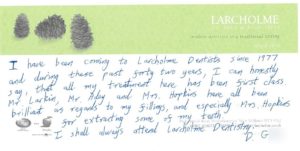 LARCHOLME
modern dentistry in a traditional setting
I have been coming to Larcholme Dentists since 1977
and during these past forty two years, I can honestly
say, that all my treatment here has been first class.
Mr. Larkin, Mr. Aday and Mrs. Hopkins have all been
brilliant as regards to my fillings, and especially Mrs. Hopkins
for extracting some of my teeth.
I shall always attend Larcholme Dentistry.
D G